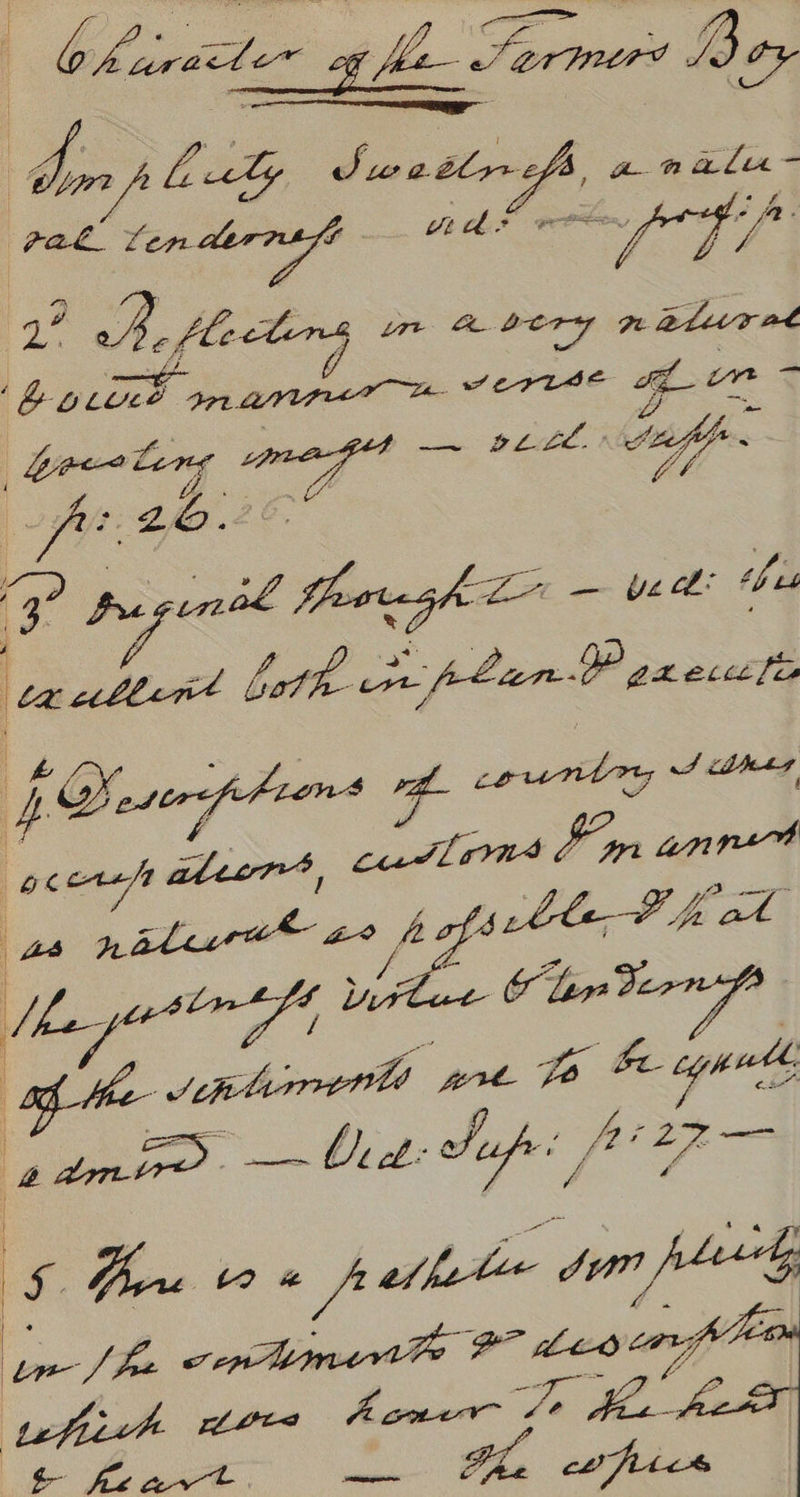 Character of the Farmers Boy
Simplicity Sweetness, a natu-
ral tenderness — vid:
2d. Reflecting in a very natural
manner a sense of in-
images — vid. Supp.
p: 26.
3d original thoughts — vid: the
excellent both in plan & executio
4 Descriptions of country Scenes,
occupations, customs & manners
as natural as possible & that
the justness, virtue & tenderness
of the sentiments are to be equally
admir'd. — Vid: Sup: p: 27 —
5. There is a pathetic simplicity
in the sentiments & description
which does honor to the head
& heart. — The copies